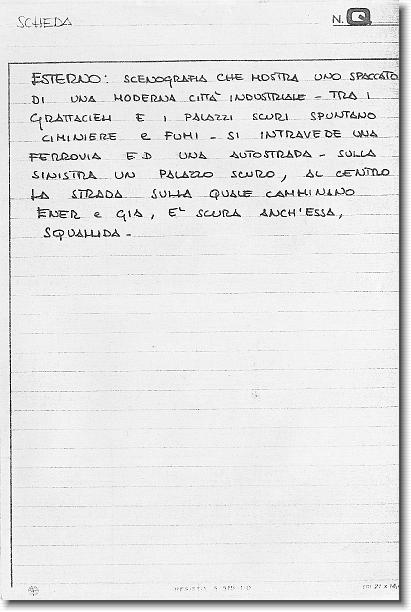 SCHEDA N. Q
ESTERNO: SCENOGRAFIA CHE MOSTRA UNO SPACCATO
DI UNA MODERNA CITTÀ INDUSTRIALE - TRA I
GRATTACIELI E I PALAZZI SCURI SPUNTANO
CIMINIERE e FUMI - SI INTRAVEDE UNA
FERROVIA ED UNA AUTOSTRADA - SULLA
SINISTRA UN PALAZZO SCURO, AL CENTRO
LA STRADA SULLA QUALE CAMMINANO
ENER e GIA, E' SCURA ANCH'ESSA,
SQUALLIDA -